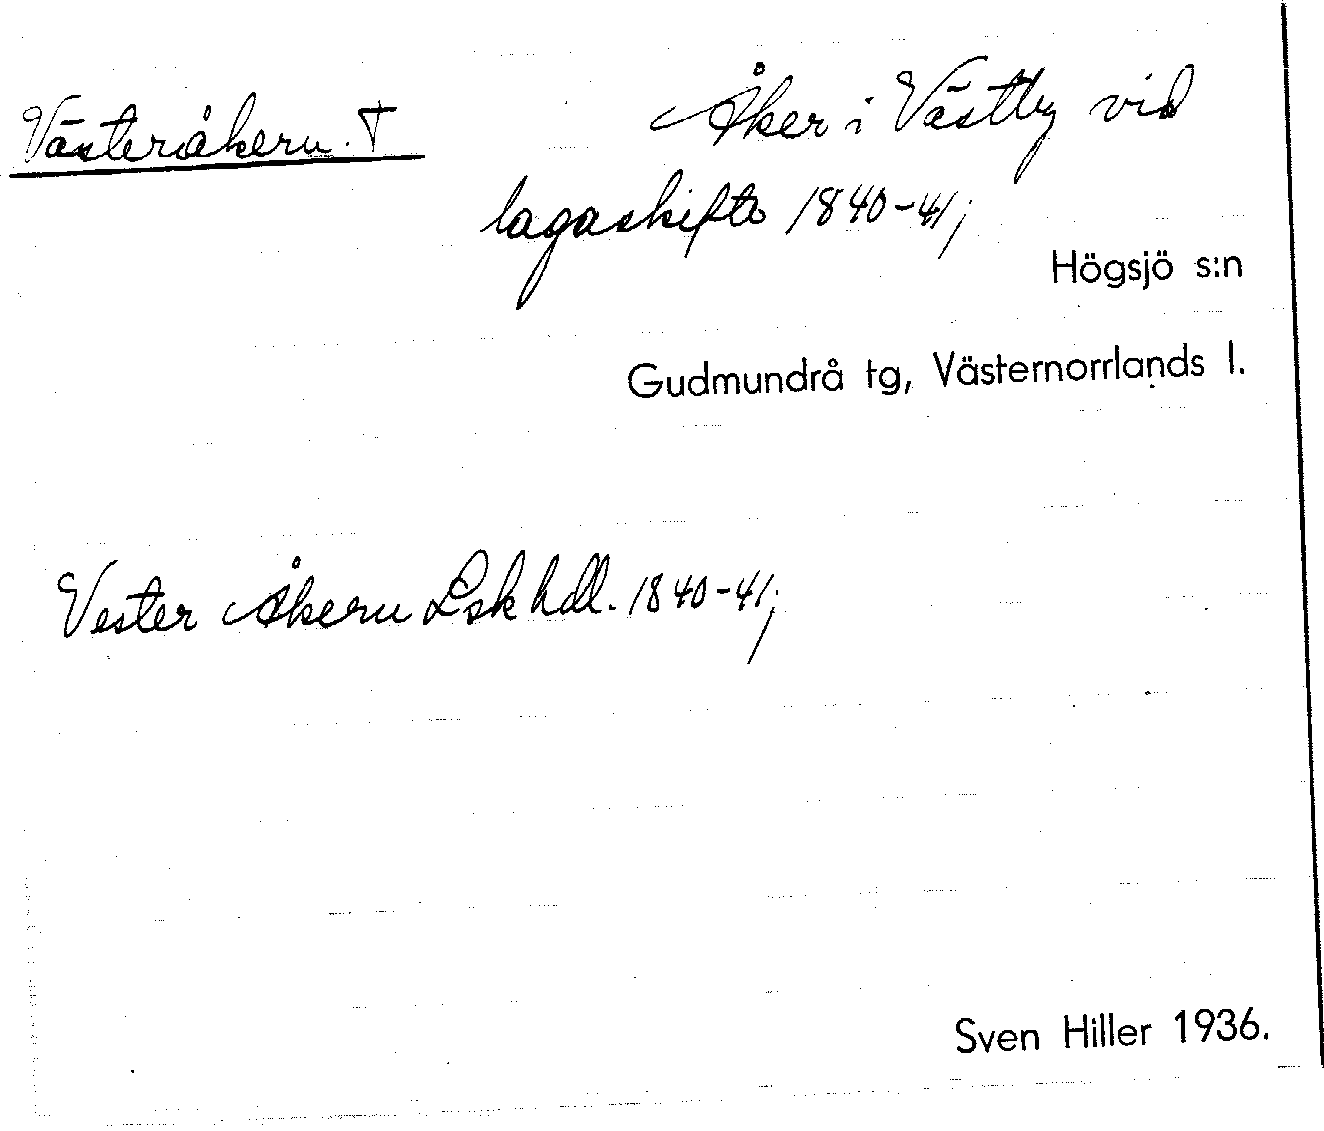 Västeråkern. †
Åker i Västby vid
lagaskifte 1840-41;
Högsjö s:n
Gudmundrå tg, Västernorrlands l.
Vester Åkern Lsk hdl. 1840-41;
Sven Hiller 1936.